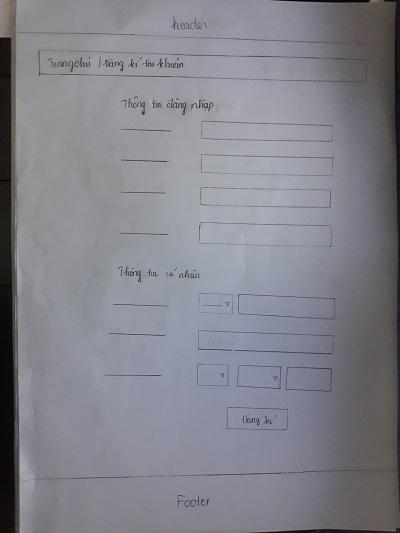 header
Trang chủ / Đăng kí tài khoản
Thông tin đăng nhập
Thông tin cá nhân
Đăng kí
Footer